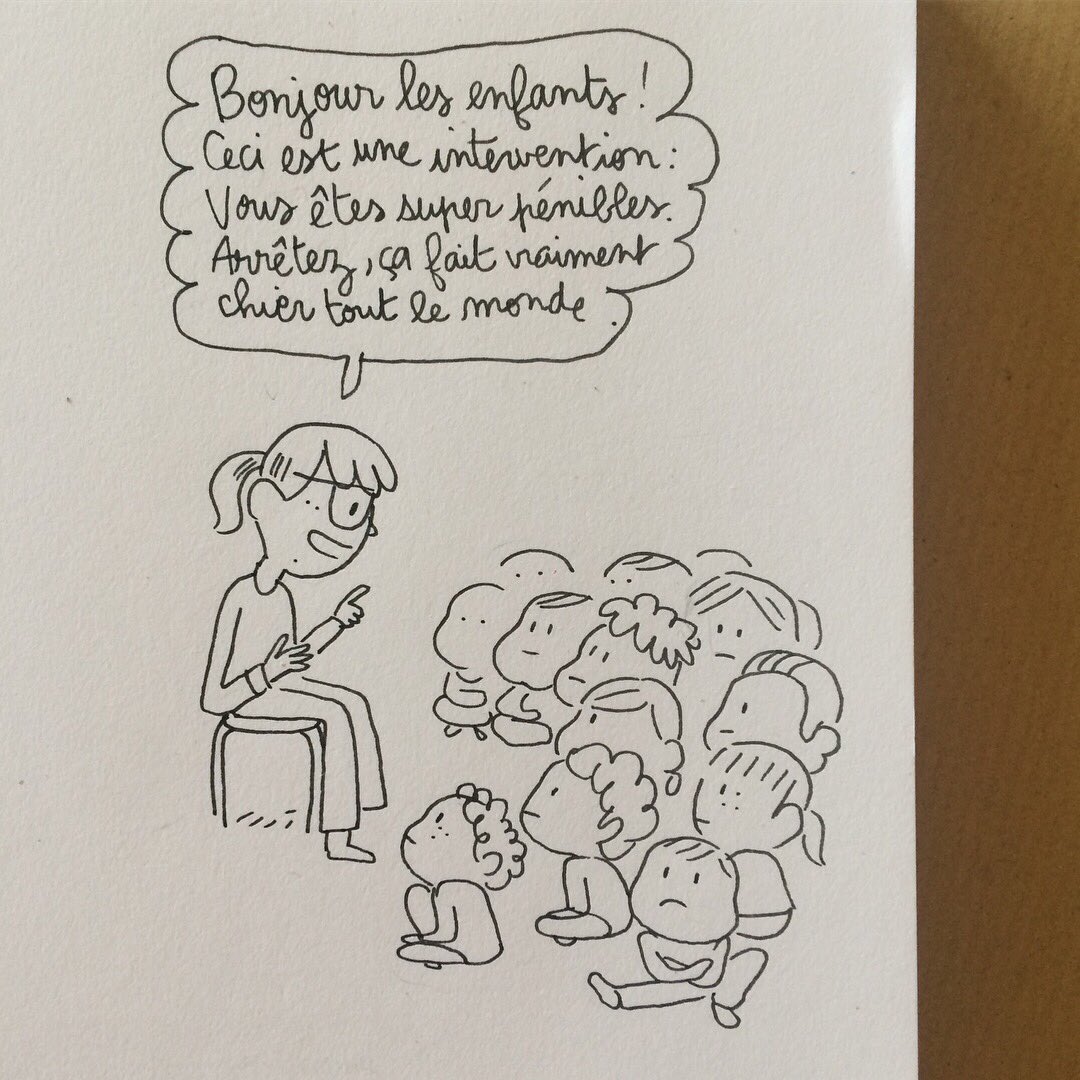 Bonjour les enfants !
Ceci est une intervention :
Vous êtes super pénibles.
Arrêtez, ça fait vraiment
chier tout le monde.